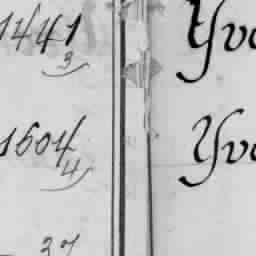 1441 Yvo
3
1504 Yvo
4
37